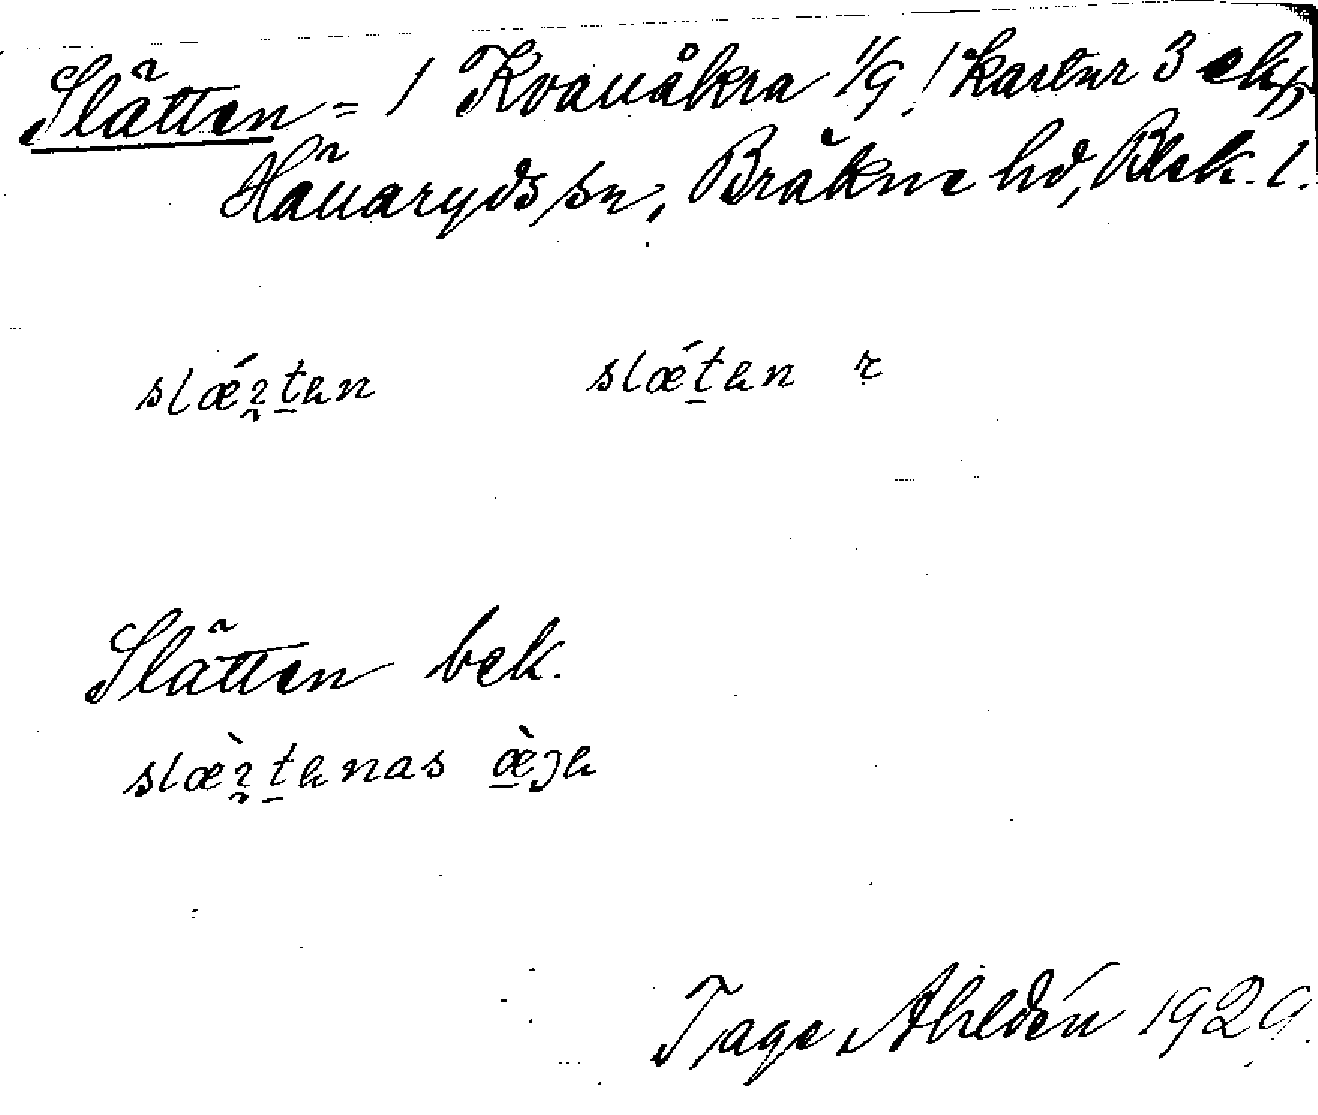 Slätten = 1 Kvarnåkra 1/9 ! kartnr 3 ek
Hällaryds sn, Bräkne hd, Blek. l.
slǽten slǽten
Slätten bek.
slæ̀tenas æ̀je
Tage Ahldén 1929.